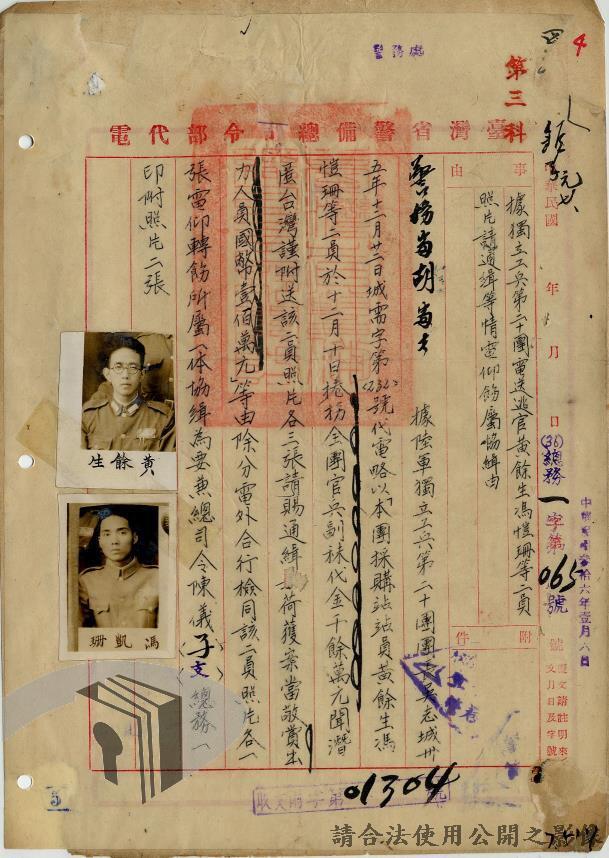 第三科
4
警務處
臺灣省警備總司令部代電
事由
據獨立工兵第二十團電送逃官黃餘生馮愷珊等二員
照片請通緝等情電仰飭屬協緝由
附件
民國 年 月 日
(36)總務一字第065號
中華民國叁拾六年壹月六日
覆文請註明來文月日及字號
警務處胡處長
據陸軍獨立工兵第二十團團長吳志城卅
五年十二月廿二日城需字第(734)號代電略以「本團採購站站員黃餘生馮
愷珊等二員於十二月十日捲扐全團官兵副秣代金千餘萬元聞潛
匿台灣謹附送該二員照片各三張請賜通緝
荷獲案當敬賞出
力人員國幣壹佰萬元」等由除分電外合行檢同該二員照片各一
張電仰轉飭所屬一体協緝為要兼總司令陳儀(子支)總務一
印附照片二張
黃餘生
馮凱珊
01304
5
請合法使用公開之影像